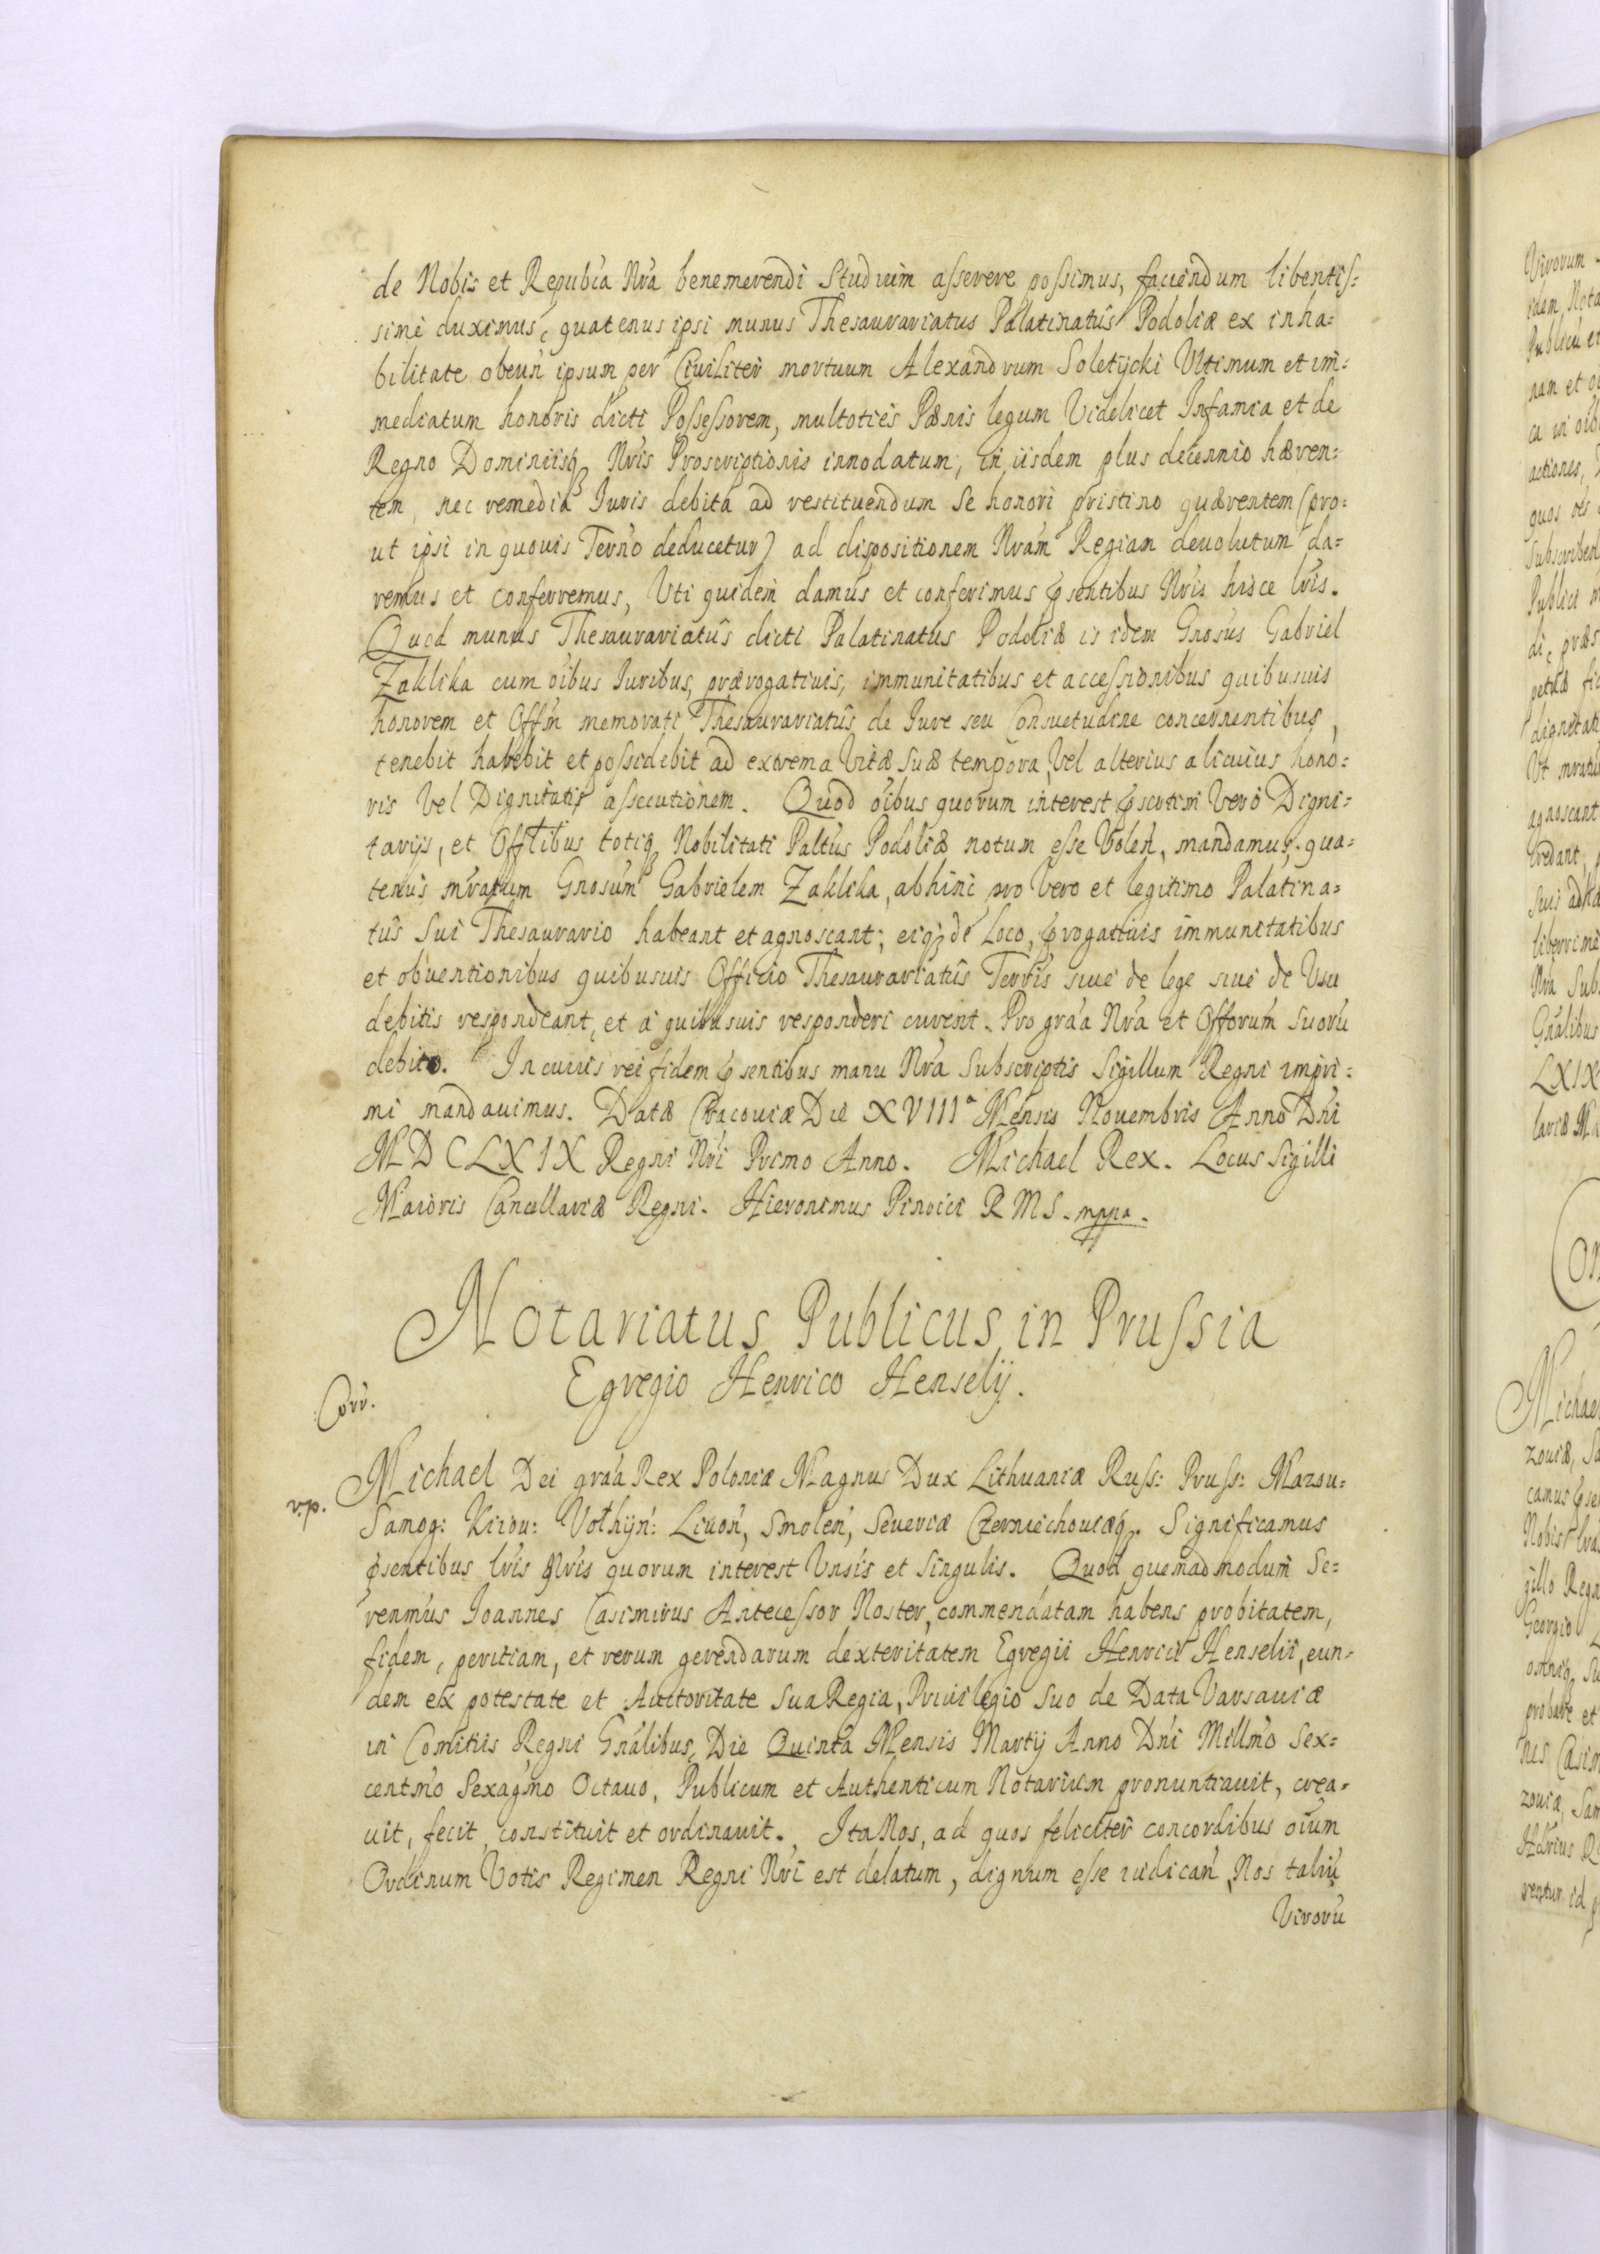 de Nobis et Repub'ca Nr'a benemerendi Studium asserere possimus, faciendum libentis-
sime duximus, quatenus ipsi munus Thesaurariatus Palatinatûs Podoliæ ex inha-
bilitate obeun' ipsum per Ciuiliter mortuum Alexandrum Soletÿcki Ultimum et im-
mediatum honoris dicti Possessorem, multoties Pœnis legum Videlicet Infamia et de
Regno Dominiisq3 Nr'is Proscriptionis innodatum, in iisdem plus decennio hæren-
tem, nec remedia Iuris debita ad restituendum Se honori pristino quærentem (pro-
ut ipsi in quouis Ter'no deducetur) ad dispositionem Nr'am Regiam deuolutum da-
remus et conferremus, Uti quidem damus et conferimus p'sentibus Nr'is hisce lr'is.
Quod munus Thesaurariatûs dicti Palatinatus Podoliæ is idem Gnosus Gabriel
Zaklika cum oîbus Iuribus, prærogatiuis, immunitatibus et accessionibus quibusuis
honorem et Off'm memorati Thesaurariatûs de Iure seu Consuetudine concernentibus,
tenebit habebit et possidebit ad extrema Vitæ Suæ tempora, Vel alterius alicuius hono-
ris Vel Dignitatis assecutionem. Quod oîbus quorum interest p'sertim Vero Digni-
tarijs, et Off'libus totiq3 Nobilitati Palt'us Podoliæ notum esse Volen', mandamus, qua-
tenus mr'atum Gnosum Gabrielem Zaklika, abhinc pro Vero et legitimo Palatina-
tûs Sui Thesaurario habeant et agnoscant; eiq3 de Loco, p'rogatiuis immunitatibus
et obuentionibus quibusuis Officio Thesaurariatûs Terr'is siue de lege siue de Usu
debitis respondeant, et a quibusuis responderi curent. Pro gra'a Nr'a et Off'orum Suorū
debito. In cuius rei fidem p'sentibus manu Nr'a Subscriptis Sigillum Regni impri-
mi mandauimus. Datæ Cracouiæ Die XVIIIa Mensis Nouembris Anno Dn'i
MDCLXIX Regni Nr'i Primo Anno. Michael Rex. Locus Sigilli
Maioris Cancellariæ Regni. Hieronimus Pinocci R M S. mppa.
Notariatus Publicus in Prussia
Egregio Henrico Henselij.
Corr.
Michael Dei gra'a Rex Poloniæ Magnus Dux Lithuaniæ Russ: Pruss: Mazou:
r.p.
Samog: Kiiou: Volhÿn: Liuon', Smolen', Seueriæ Czerniechouiæq3. Significamus
p'sentibus lr'is Nr'is quorum interest Unsi's et Singulis. Quod quemadmodum Se-
renm'us Ioannes Casimirus Antecessor Noster, commendatam habens probitatem,
fidem, peritiam, et rerum gerendarum dexteritatem Egregii Henrici Henselii, eun-
dem ex potestate et Auctoritate Sua Regia, Priuilegio Suo de Data Varsauiæ
in Comitiis Regni Gn'alibus, Die Quinta Mensis Martij Anno Dn'i Millm'o Sex-
centm'o Sexagm'o Octauo, Publicum et Authenticum Notarium pronuntiauit, crea-
uit, fecit, constituit et ordinauit. Ita Nos, ad quos feliciter concordibus oîum
Ordinum Votis Regimen Regni Nr'i est delatum, dignum esse iudican', Nos taliū
Virorū